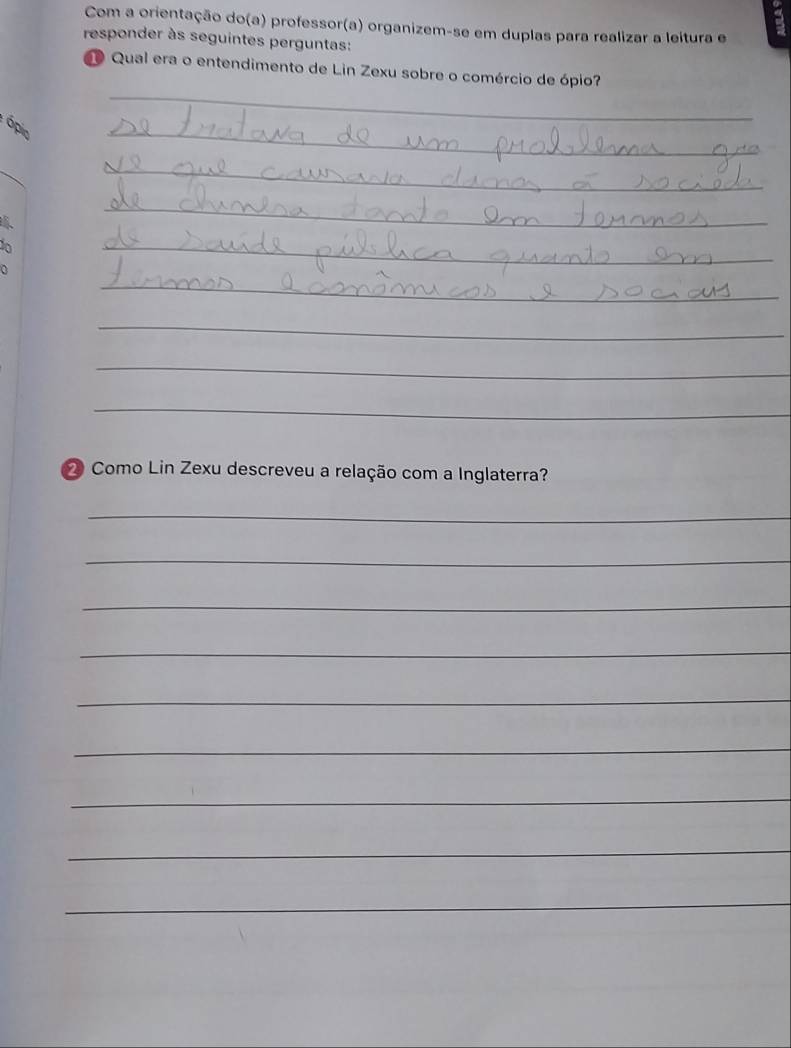 AULA 9
Com a orientação do(a) professor(a) organizem-se em duplas para realizar a leitura e
responder às seguintes perguntas:
1 Qual era o entendimento de Lin Zexu sobre o comércio de ópio?
ópio
se tratava de um problema gra
ve que causava danos à socieda
de chinesa, tanto em termos
de saúde pública quanto em
termos econômicos e sociais
2 Como Lin Zexu descreveu a relação com a Inglaterra?